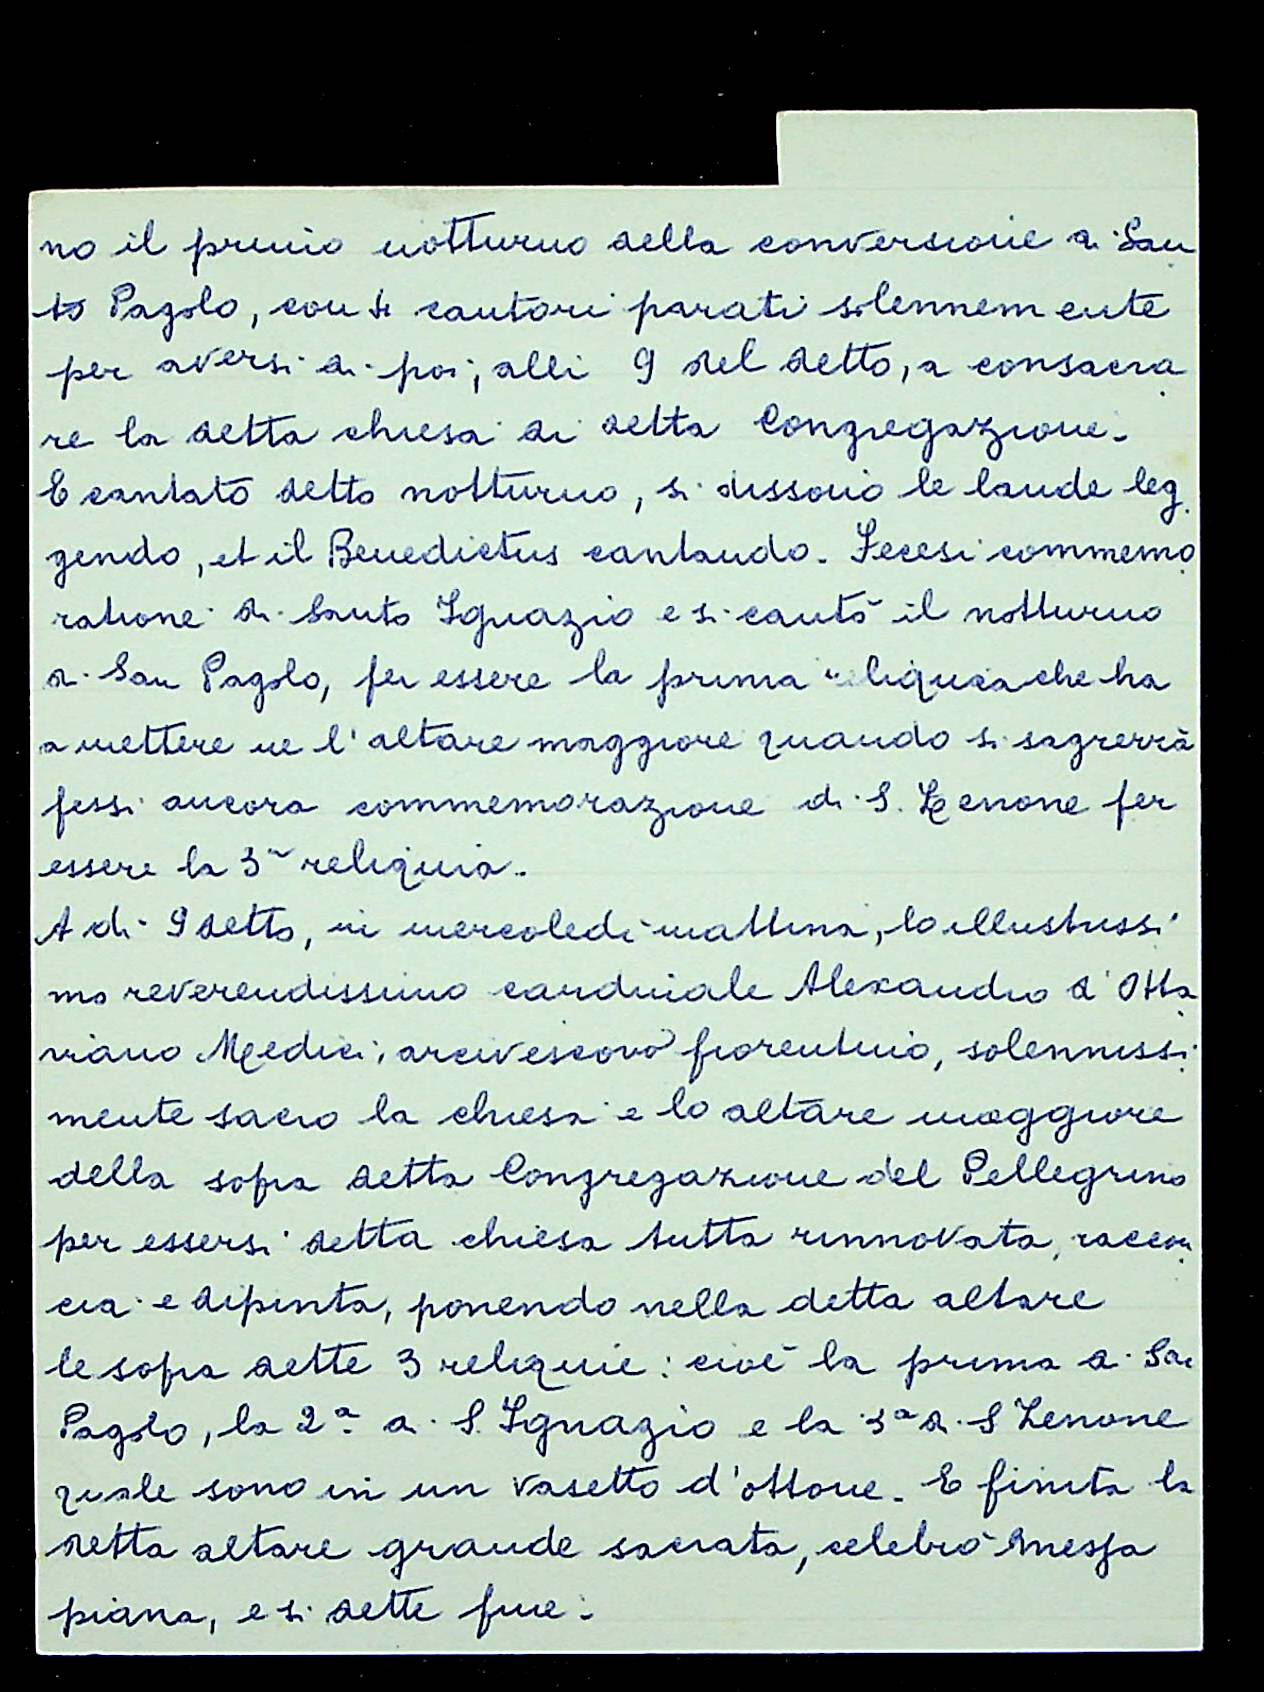 no il primo notturno della conversione di San
to Pagolo, con 4 cantori parati solennemente
per aversi di poi, alli 9 del detto, a consacra
re la detta chiesa di detta Congregazione.
E cantato detto notturno, si dissono le laude leg
gendo, et il Benedictus cantando. Fecesi commemo
ratione di Santo Ignazio e si cantò il notturno
di San Pagolo, per essere la prima reliquia che ha
a mettere ne l'altare maggiore quando si sagrerrà
fessi ancora commemorazione di S. Zenone per
essere la 3ª reliquia.
A di 9 detto, in mercoledi mattina, lo illustrissi
mo reverendissimo cardinale Alexandro d'Otta
viano Medici, arcivescovo fiorentino, solennissi
mente sacro la chiesa e lo altare maggiore
della sopra detta Congregazione del Pellegrino
per essersi detta chiesa tutta rinnovata, raccon
cia e dipinta, ponendo nella detta altare
le sopra dette 3 reliquie: cioè la prima di San
Pagolo, la 2ª di S. Ignazio e la 3ª di S Zenone
quale sono in un vasetto d'ottone. E finita la
detta altare grande sacrata, celebrò messa
piana, e si dette fine.